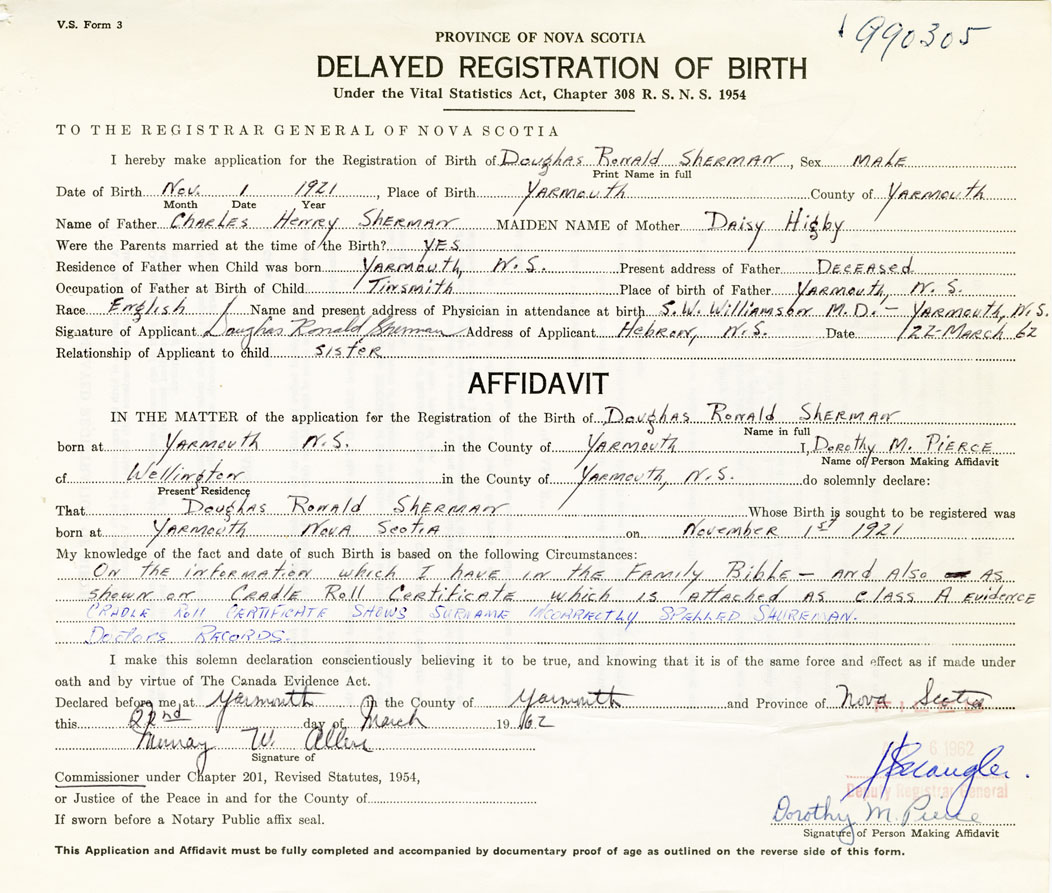 V.S. Form 3
990305
PROVINCE OF NOVA SCOTIA
DELAYED REGISTRATION OF BIRTH
Under the Vital Statistics Act, Chapter 308 R. S. N. S. 1954
TO THE REGISTRAR GENERAL OF NOVA SCOTIA
I hereby make application for the Registration of Birth of Doughas Ronald SHERMAN, Sex MALE
Print Name in full
Date of Birth Nov. 1 1921, Place of Birth YARMOUTH County of YARMOUTH
Month Date Year
Name of Father CHARLES HENRY SHERMAN MAIDEN NAME of Mother DAISY Higby
Were the Parents married at the time of the Birth? YES
Residence of Father when Child was born YARMOUTH, N.S. Present address of Father DECEASED
Occupation of Father at Birth of Child TINSMITH Place of birth of Father YARMOUTH, N.S.
Race English Name and present address of Physician in attendance at birth S.W. Williamson M.D. – YARMOUTH, N.S.
Signature of Applicant Doughas Ronald Sherman Address of Applicant HEBRON, N.S. Date 22 MARCH 62
Relationship of Applicant to child SISTER
AFFIDAVIT
IN THE MATTER of the application for the Registration of the Birth of Doughas Ronald SHERMAN
Name in full
born at YARMOUTH N.S. in the County of YARMOUTH I, DOROTHY M. PIERCE
Name of Person Making Affidavit
of Wellington in the County of YARMOUTH, N.S. do solemnly declare:
Present Residence
That Doughas Ronald SHERMAN Whose Birth is sought to be registered was
born at YARMOUTH NOVA SCOTIA on November 1st 1921
My knowledge of the fact and date of such Birth is based on the following Circumstances:
On the information which I have in the Family Bible – and also as
shown on Cradle Roll Certificate which is attached as class A evidence
CRADLE ROLL CERTIFICATE SHOWS SURNAME INCORRECTLY SPELLED SHUREMAN.
Doctors Records.
I make this solemn declaration conscientiously believing it to be true, and knowing that it is of the same force and effect as if made under
oath and by virtue of The Canada Evidence Act.
Declared before me at Yarmouth in the County of Yarmouth and Province of Nova Scotia
this 22nd day of March 1962
Murray W. Allen
Signature of
Commissioner under Chapter 201, Revised Statutes, 1954,
or Justice of the Peace in and for the County of
If sworn before a Notary Public affix seal.
6 1962
Deputy Registrar General
Dorothy M. Pierce
Signature of Person Making Affidavit
This Application and Affidavit must be fully completed and accompanied by documentary proof of age as outlined on the reverse side of this form.